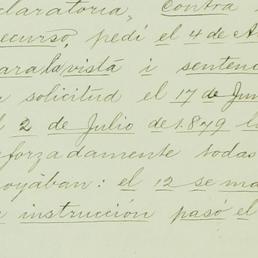 claratoria, contra
ecurso, pedí el 4 de A
ara la vista i senten
a solicitud el 17 de Jun
l 2 de Julio de 1879 l
eforzadamente todas
oyában: el 12 se ma
a instrucción pasó el